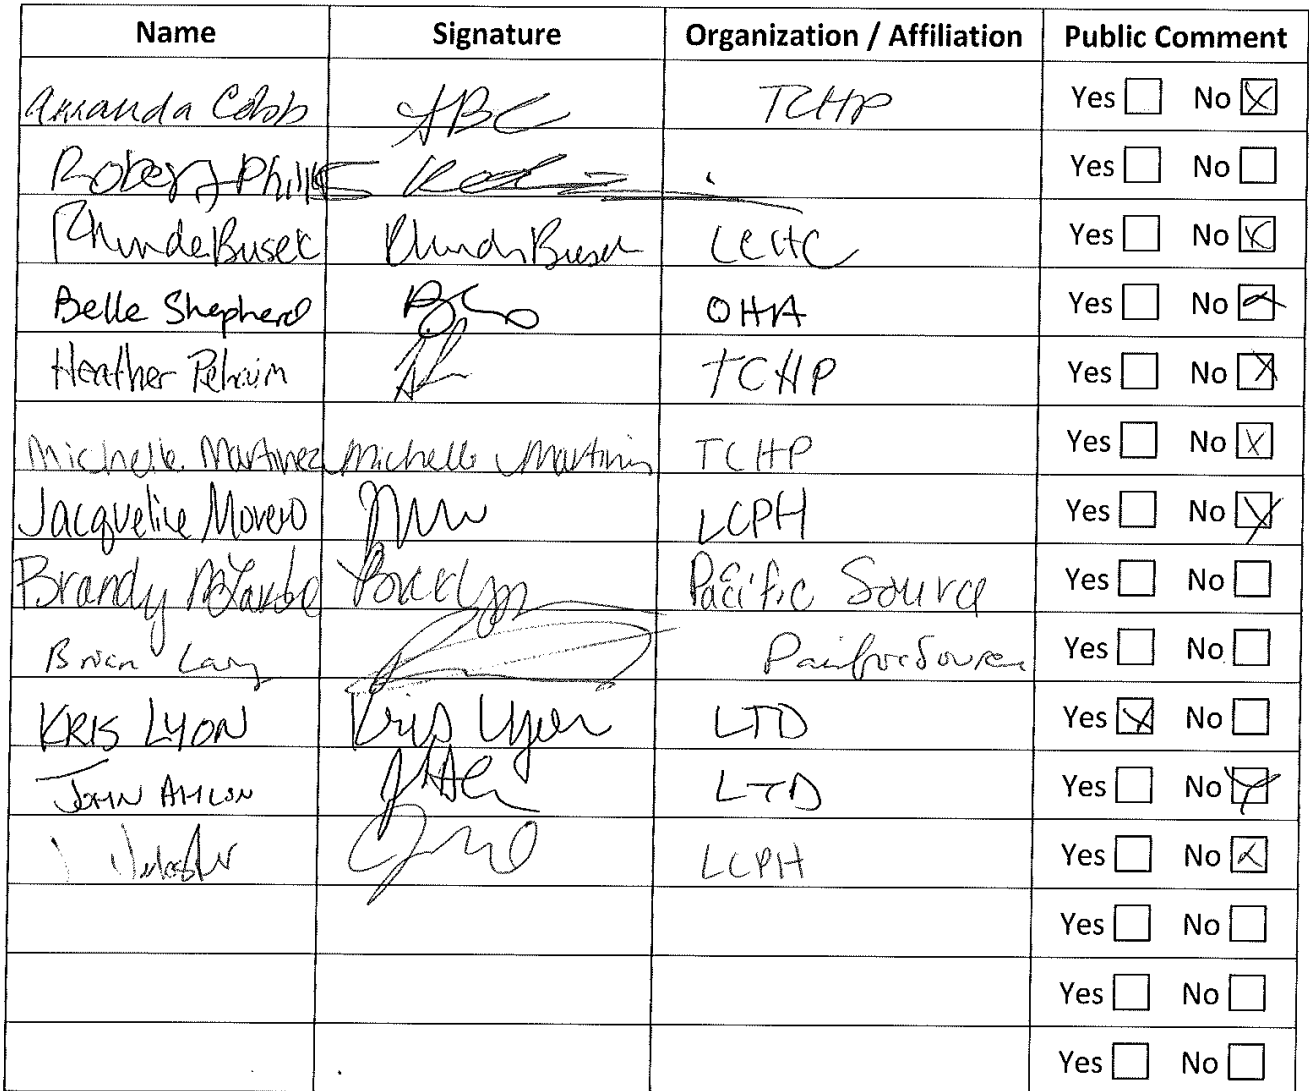 Name Signature Organization / Affiliation Public Comment
Amanda Cobb ABC TCHP Yes No
Robert Phillips Yes No
Rhonda Busek Rhonda Busek LCHC Yes No
Belle Shepherd OHA Yes No
Heather TCHP Yes No
Michelle Martinez Michelle Martinez TCHP Yes No
Jacqueline Moreno LCPH Yes No
Brandy Pacific Source Yes No
Brian Pacific Source Yes No
KRIS LYON Kris Lyon LTD Yes No
JOHN AHLEN LTD Yes No
LCPH Yes No
Yes No
Yes No
Yes No